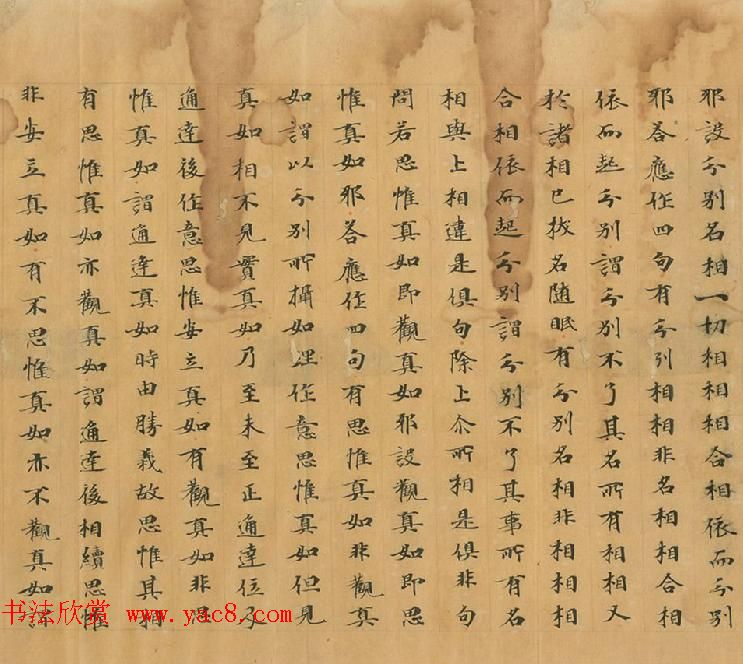 邪設分別名相一切相相相合相依而分別
邪荅應作四句有分別相相非名相相合相
依而起分別謂分別不了其名所有相相又
於諸相已拔名随眠有分別名相非相相相
合相依而起分別謂分別不了其事所有名
相與上相違是俱句除上尒所相是俱非句
問若思惟真如即觀真如邪設觀真如即思
惟真如邪荅應作四句有思惟真如非觀真
如謂以分別所攝如理作意思惟真如但見
真如相不見實真如乃至未至正通達位及
通達後作意思惟安立真如有觀真如非思
惟真如謂通達真如時由勝義故思惟其相
有思惟真如亦觀真如謂通達後相續思惟
非安立真如有不思惟真如亦不觀真如謂
书法欣赏 www.yac8.com